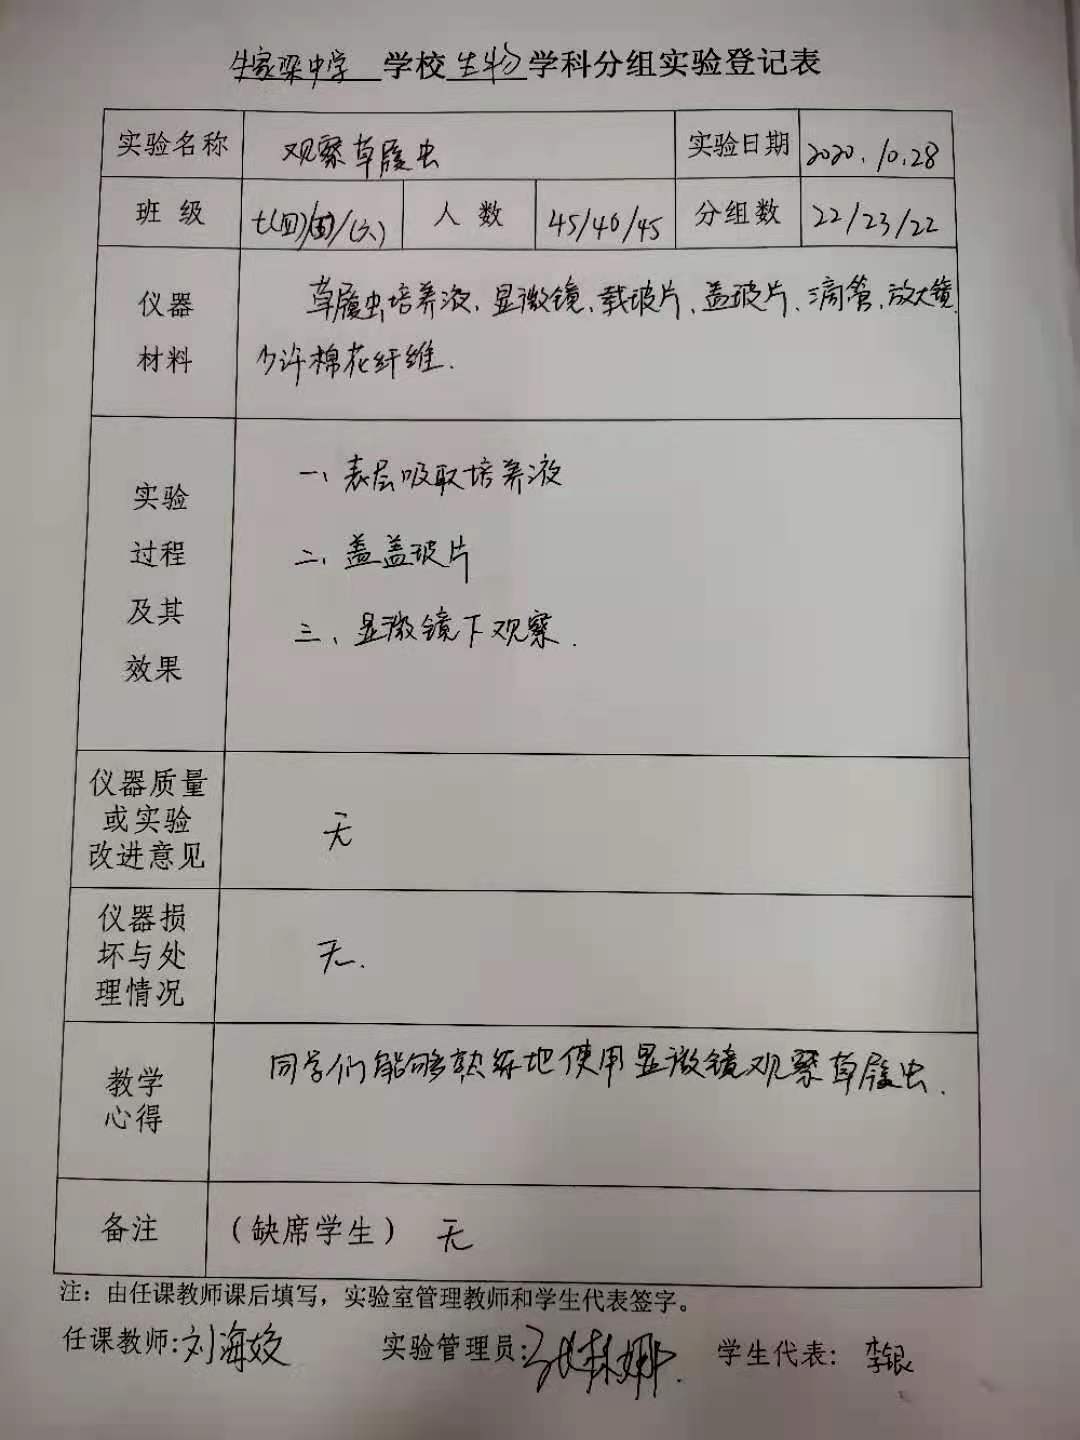 牛家梁中学 学校 生物 学科分组实验登记表
实验名称 观察草履虫 实验日期 2020.10.28
班 级 七(四)/(五)/(六) 人 数 45/46/45 分组数 22/23/22
仪器 材料 草履虫培养液、显微镜、载玻片、盖玻片、滴管、放大镜、
少许棉花纤维.
实验 过程 及其 效果
一、表层吸取培养液
二、盖盖玻片
三、显微镜下观察.
仪器质量
或实验
改进意见 无
仪器损
坏与处
理情况 无.
教学
心得 同学们能够熟练地使用显微镜观察草履虫.
备注 （缺席学生） 无
注：由任课教师课后填写，实验室管理教师和学生代表签字。
任课教师:刘海姣 实验管理员: 学生代表: 李银